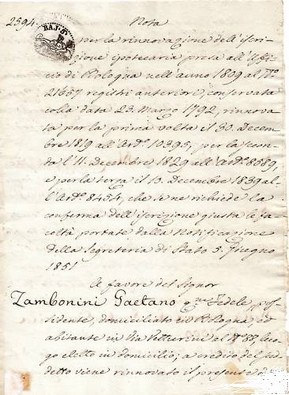 2594. Nota
per la rinnovazione dell'iscri-
zione ipotecaria presa all'Uffi-
cio di Bologna nell'anno 1809 al N.
21657 registri anteriori, conservata
colla data 23. Marzo 1792, rinnova-
ta per la prima volta il 30. Decem-
bre 1819 all'Ard. 10395, per la secon-
da l'11. Decembre 1829 all'Ard. 8089,
e per la terza il 13. Decembre 1839 al-
l'Ard. 8454, che se ne richiede la
conferma dell'iscrizione giusta le fa-
coltà portate dalla Notificazione
della Segreteria di Stato 5. Giugno
1851
A favore del Signor
Zambonini Gaetano q.m Fedele, pos-
sidente, domiciliato in Bologna, ed
abitante in Via al N. luo-
go eletto in domicilio; a credito del sud-
detto viene rinnovato il presente